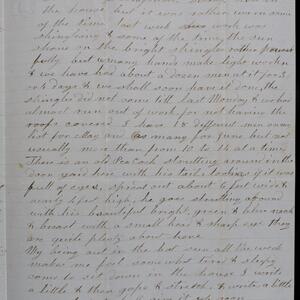 the house but it was rather warm some
of the time last week was
shingling & some of the time, the sun
shone on the bright shingles rather power
fully but many hands make light work
& we have had about a dozen men at it for 3
days & we shall soon have it done, the
shingles did not come till last Monday &
almost run out of work for not having the
roofs covered I have 18 different men on my
list for May and as many for June but not
usually more than from 10 to 14 at a time,
There is an old Peacock strutting around in the
door yard here with his tail looks as if it was
full of eyes, spread out about 6 feet wide &
nearly 4 feet high, he goes strutting around
with his beautiful bright, green & blue neck
& breast with a small head & sharp eyes They
are quite plenty about here.
My being out in the hot sun all the week
makes me feel somewhat tired & sleepy
come to set down in the house I write
a little & then gape & stretch, & write a little